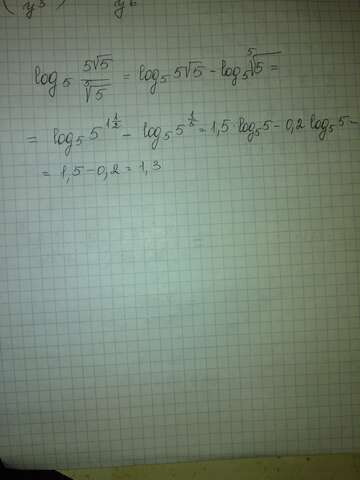 ( y³ ) y⁶
log₅ 5√5 / ⁵√5 = log₅ 5√5 - log₅ ⁵√5 =
= log₅ 5^(1 1/2) - log₅ 5^(1/5) = 1,5 · log₅ 5 - 0,2 log₅ 5 -
= 1,5 - 0,2 = 1,3